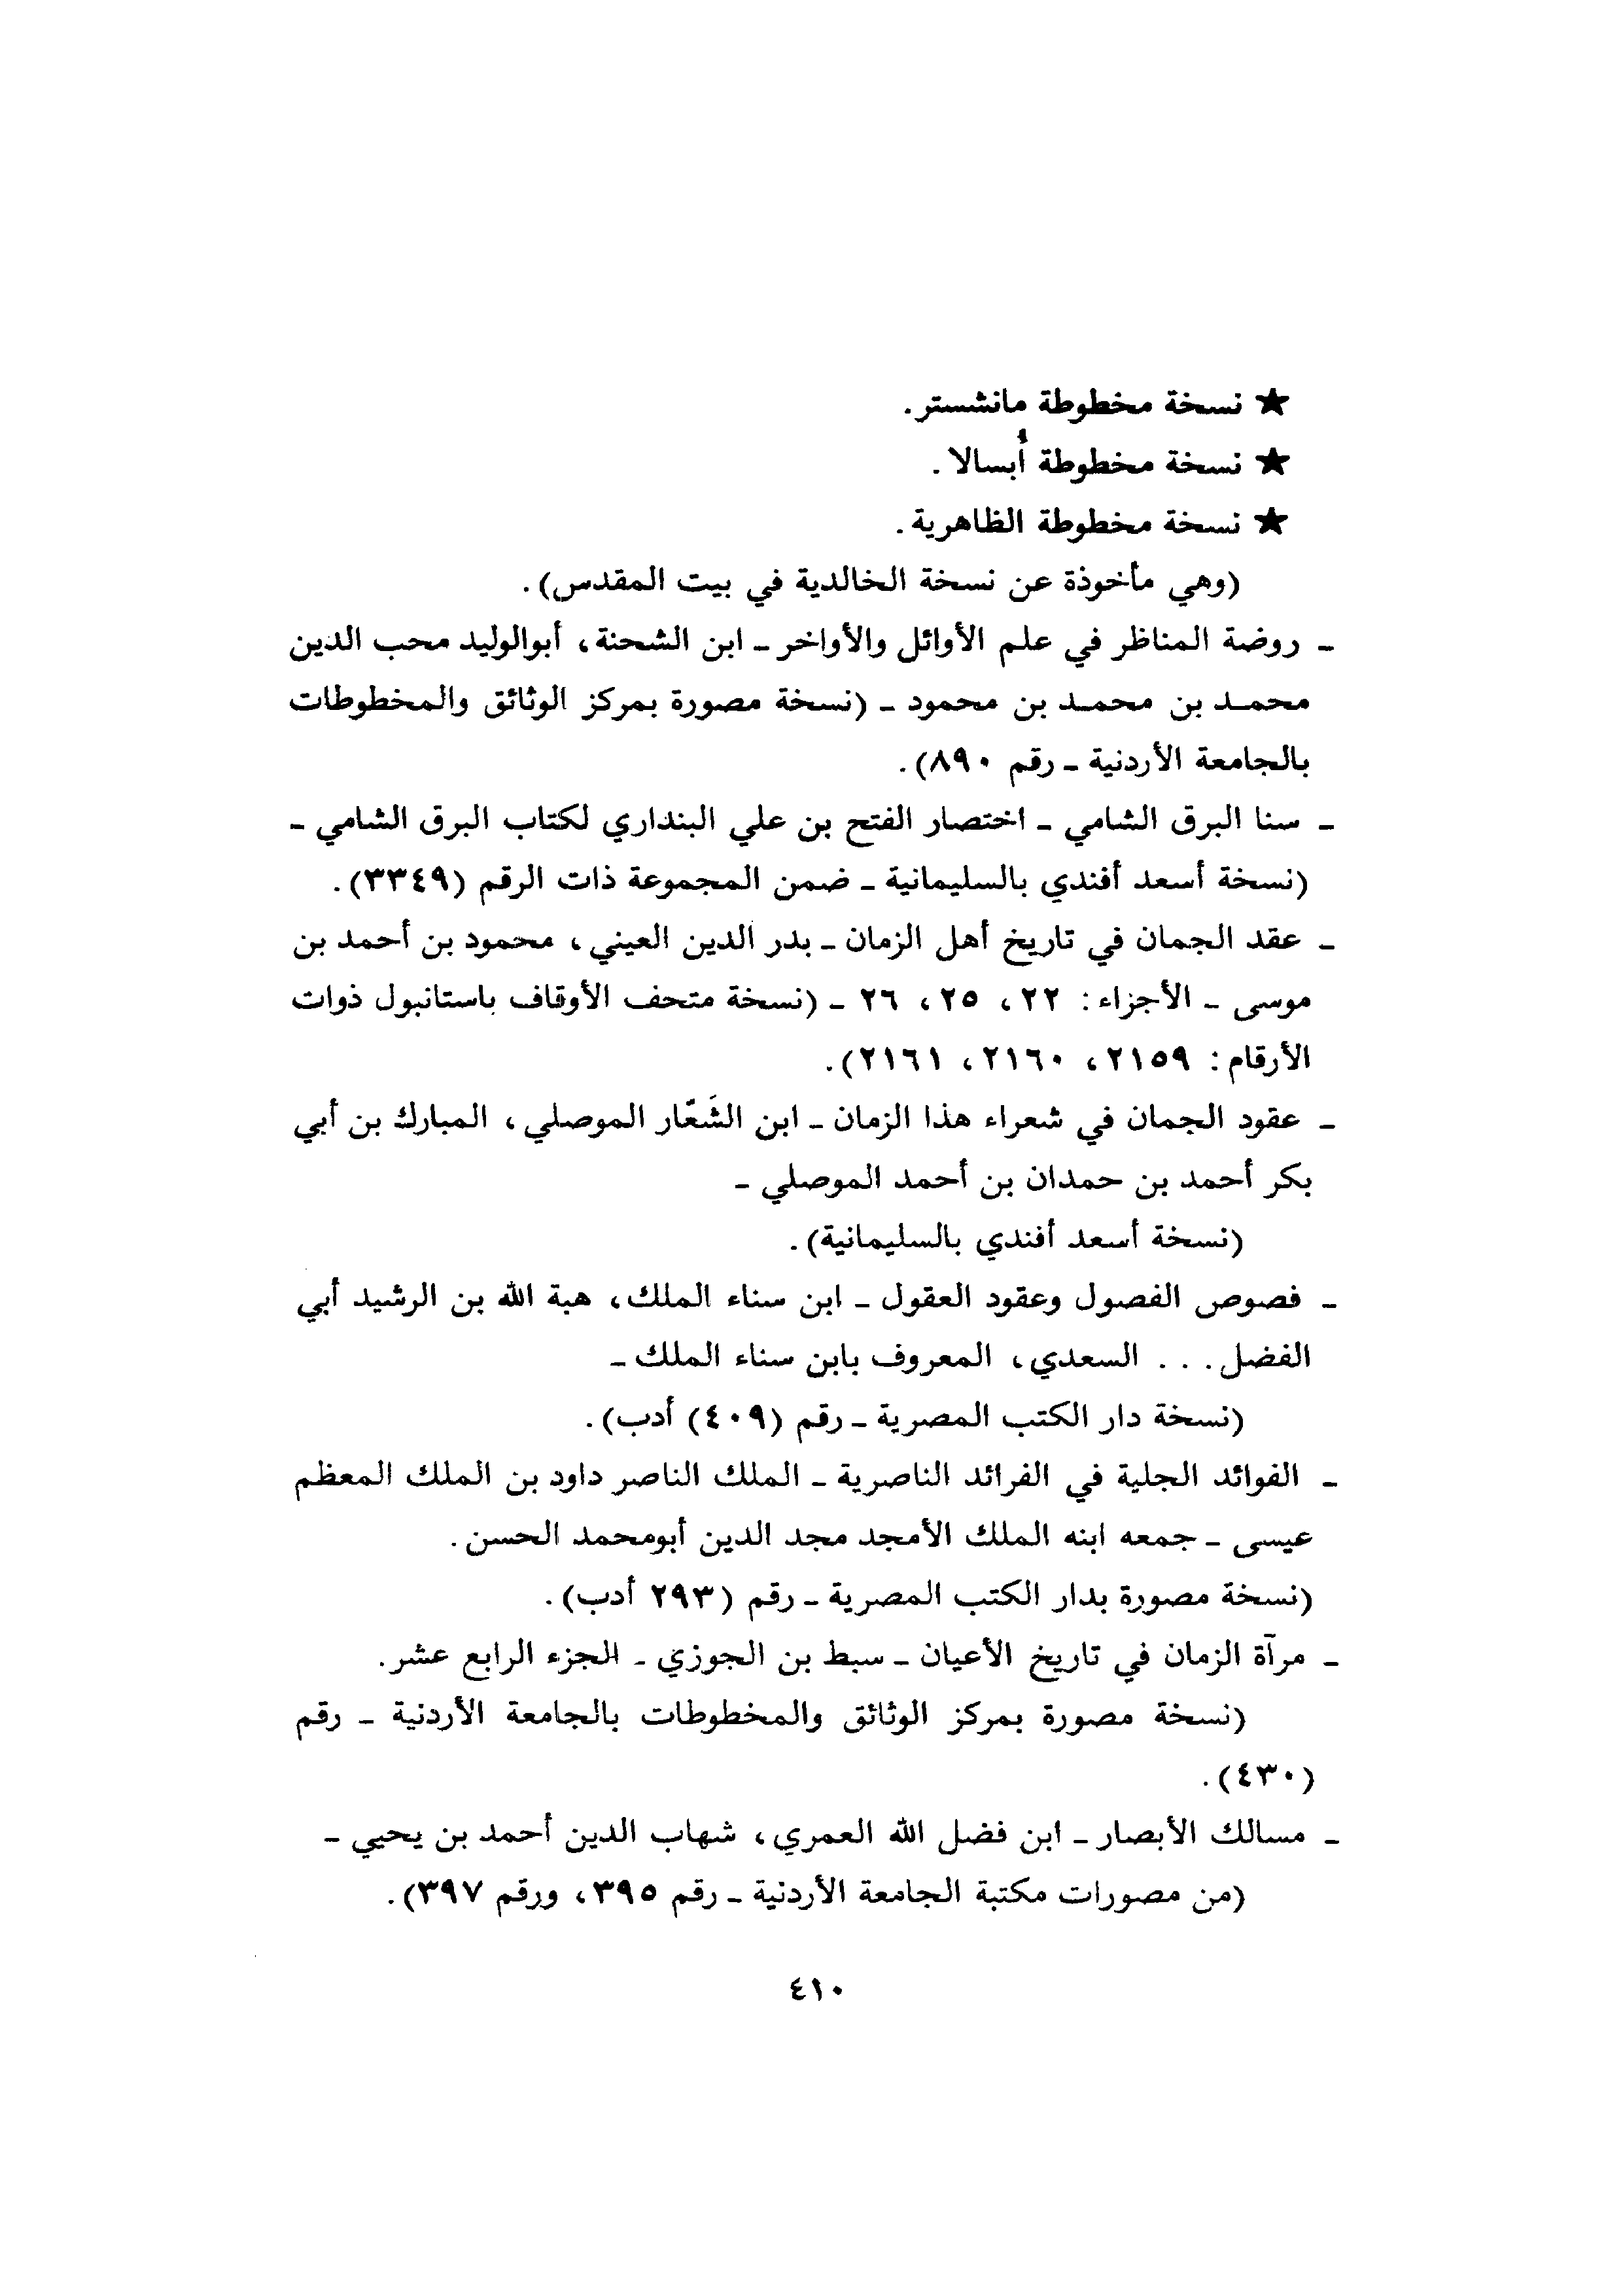 ★ نسخة مخطوطة مانشستر.
★ نسخة مخطوطة أُبسالا.
★ نسخة مخطوطة الظاهرية.
(وهي مأخوذة عن نسخة الخالدية في بيت المقدس).
ـ روضة المناظر في علم الأوائل والأواخر ـ ابن الشحنة، أبوالوليد محب الدين
محمـد بن محمـد بن محمود ـ (نسخة مصورة بمركز الوثائق والمخطوطات
بالجامعة الأردنية ـ رقم ٨٩٠).
ـ سنا البرق الشامي ـ اختصار الفتح بن علي البنداري لكتاب البرق الشامي ـ
(نسخة أسعد أفندي بالسليمانية ـ ضمن المجموعة ذات الرقم (٣٣٤٩).
ـ عقد الجمان في تاريخ أهل الزمان ـ بدر الدين العيني، محمود بن أحمد بن
موسى ـ الأجزاء: ٢٢، ٢٥، ٢٦ ـ (نسخة متحف الأوقاف باستانبول ذوات
الأرقام: ٢١٥٩، ٢١٦٠، ٢١٦١).
ـ عقود الجمان في شعراء هذا الزمان ـ ابن الشَعّار الموصلي، المبارك بن أبي
بكر أحمد بن حمدان بن أحمد الموصلي ـ
(نسخة أسعد أفندي بالسليمانية).
ـ فصوص الفصول وعقود العقول ـ ابن سناء الملك، هبة الله بن الرشيد أبي
الفضل... السعدي، المعروف بابن سناء الملك ـ
(نسخة دار الكتب المصرية ـ رقم (٤٠٩) أدب).
ـ الفوائد الجلية في الفرائد الناصرية ـ الملك الناصر داود بن الملك المعظم
عيسى ـ جمعه ابنه الملك الأمجد مجد الدين أبومحمد الحسن.
(نسخة مصورة بدار الكتب المصرية ـ رقم (٢٩٣ أدب).
ـ مرآة الزمان في تاريخ الأعيان ـ سبط بن الجوزي ـ الجزء الرابع عشر.
(نسخة مصورة بمركز الوثائق والمخطوطات بالجامعة الأردنية ـ رقم
(٤٣٠).
ـ مسالك الأبصار ـ ابن فضل الله العمري، شهاب الدين أحمد بن يحيي ـ
(من مصورات مكتبة الجامعة الأردنية ـ رقم ٣٩٥، ورقم ٣٩٧).
٤١٠